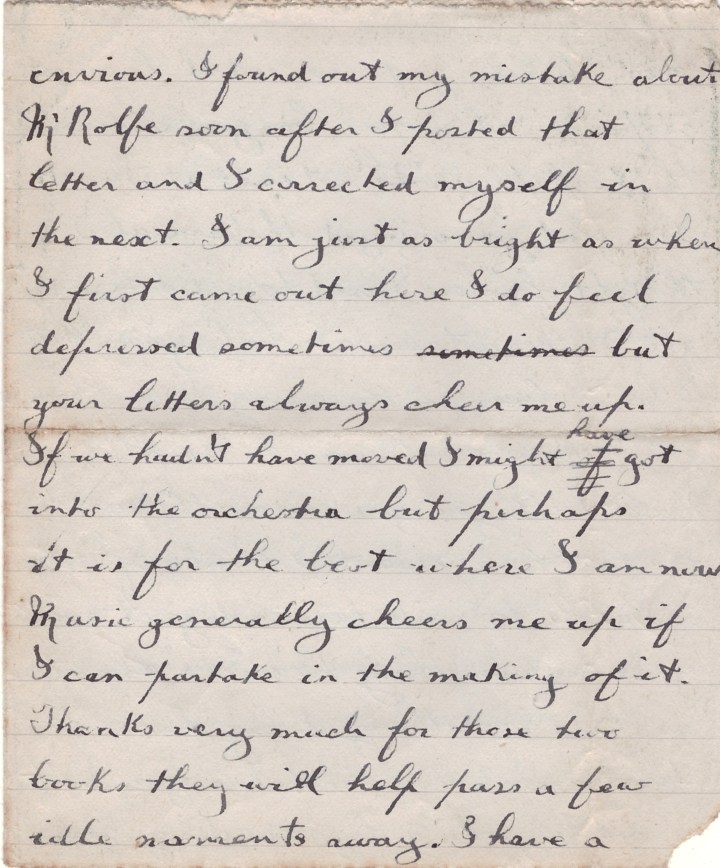 envious. I found out my mistake about
Mr Rolfe soon after I posted that
letter and I corrected myself in
the next. I am just as bright as when
I first came out here I do feel
depressed sometimes sometimes but
your letters always cheer me up.
If we hadn't have moved I might of have got
into the orchestra but perhaps
it is for the best where I am now
Music generally cheers me up if
I can partake in the making of it.
Thanks very much for those two
books they will help pass a few
idle moments away. I have a